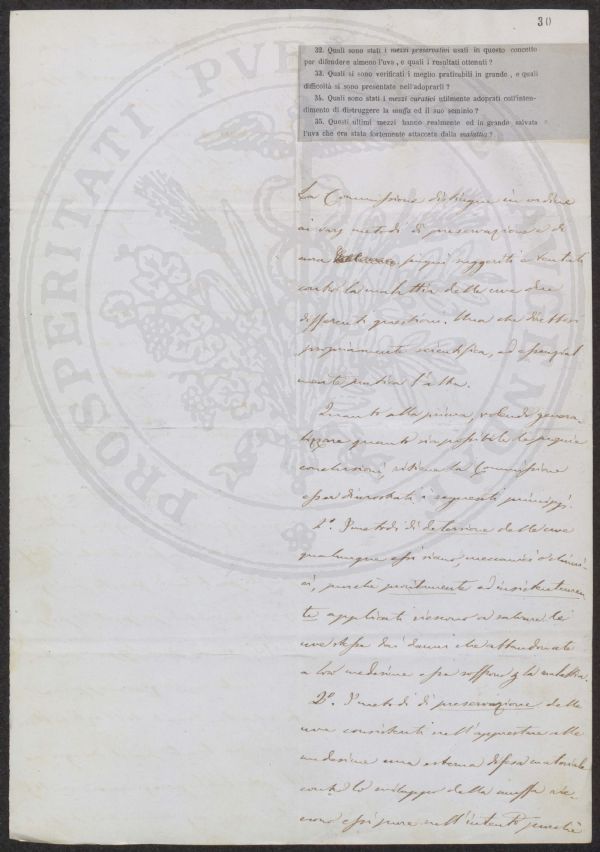 30
32. Quali sono stati i mezzi preservativi usati in questo concetto
per difendere almeno l'uva, e quali i resultati ottenuti?
33. Quali si sono verificati i meglio praticabili in grande, e quali
difficoltà si sono presentate nell'adoprarli?
34. Quali sono stati i mezzi curativi utilmente adoprati coll'inten-
dimento di distruggere la muffa ed il suo seminio?
35. Questi ultimi mezzi hanno realmente ed in grande salvata
l'uva che era stata fortemente attaccata dalla malattia?
PROSPERITATI PVB AVGENDAE
La Commissione distingue in ordine
ai varj metodi di preservazione e di
cura suggeriti e tentati
contro la malattia delle uve due
differenti questioni. Una che direttesi
propriamente scientifica, ed essenzial
mente pratica l'altra.
Quanto alla prima, volendo genera-
lizzare quanto sia possibile le proprie
conclusioni, ritiene la Commissione
esser dimostrati i seguenti principj.
1°. I metodi di detersione delle uve
qualunque essi siano, meccanici o chimi-
ci, purché prontamente ed insistentemen
te applicati riescono a salvare le
uve stesse dai danni che abbandonate
a loro medesime essa soffrono la malattia.
2°. I metodi di preservazione delle
uve consistenti nell'apprestare alle
medesime una esterna difesa materiale
contro lo sviluppo della muffa rie-
scono essi pure nell'intento purché